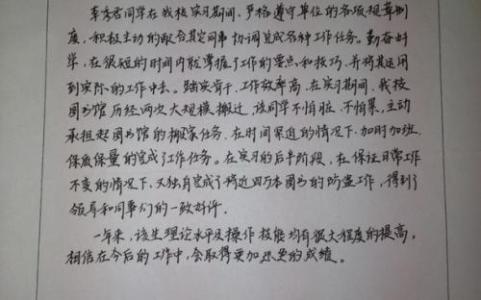 李秀君同学在我校实习期间,严格遵守单位的各项规章制
度,积极主动的配合其它同事协调完成各种工作任务。勤奋好
学,在很短的时间内就掌握了工作的要点和技巧,并将其运用
到实际的工作中去。踏实肯干,工作效率高,在实习期间,我校
图书馆历经两次大规模搬迁,该同学不怕脏、不怕累,主动
承担起图书馆的搬家任务,在时间紧迫的情况下,加时加班,
保质保量的完成了工作任务。在实习的后半阶段,在保证日常工作
不变的情况下,又独自完成了将近四万本图书的防盗工作,得到了
领导和同事们的一致好评。
一年来,该生理论水平及操作技能均有很大程度的提高,
相信在今后的工作中,会取得更加的成绩。